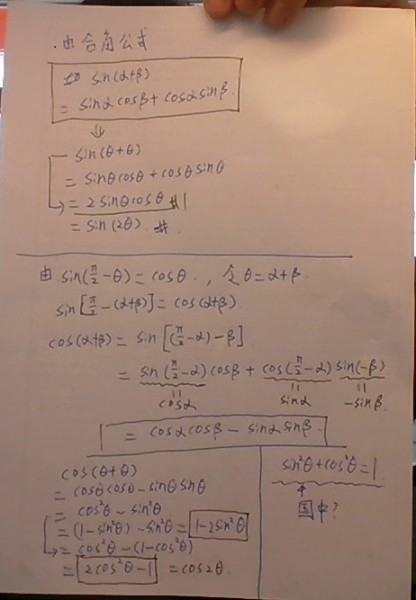 由合角公式
sin(α+β)
= sinα cosβ + cosα sinβ.
⇓
sin(θ+θ)
= sinθcosθ + cosθ sinθ
= 2 sinθcosθ #
= sin(2θ). #
由 sin(π/2 - θ) = cosθ., 令 θ = α+β.
sin[π/2 - (α+β)] = cos(α+β).
cos(α+β) = sin[(π/2 - α) - β]
= sin(π/2 - α) cosβ + cos(π/2 - α) sin(-β)
cosα sinα -sinβ.
= cosα cosβ - sinα sinβ.
cos(θ+θ)
= cosθ cosθ - sinθ sinθ
= cos²θ - sin²θ
= (1 - sin²θ) - sin²θ = 1-2sin²θ
= cos²θ - (1-cos²θ)
= 2cos²θ - 1 = cos2θ.
sin²θ + cos²θ = 1
↑
國中?